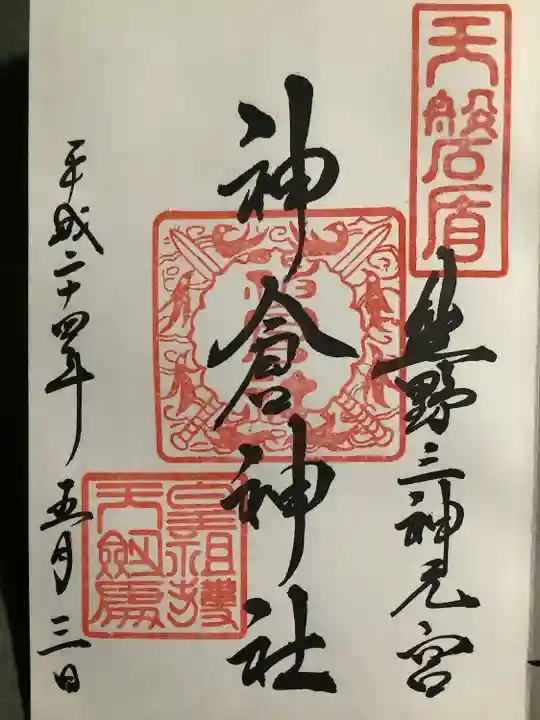 天磐盾
熊野三神元宮
神倉神社
皇祖護
天劔處
平成二十四年五月三日